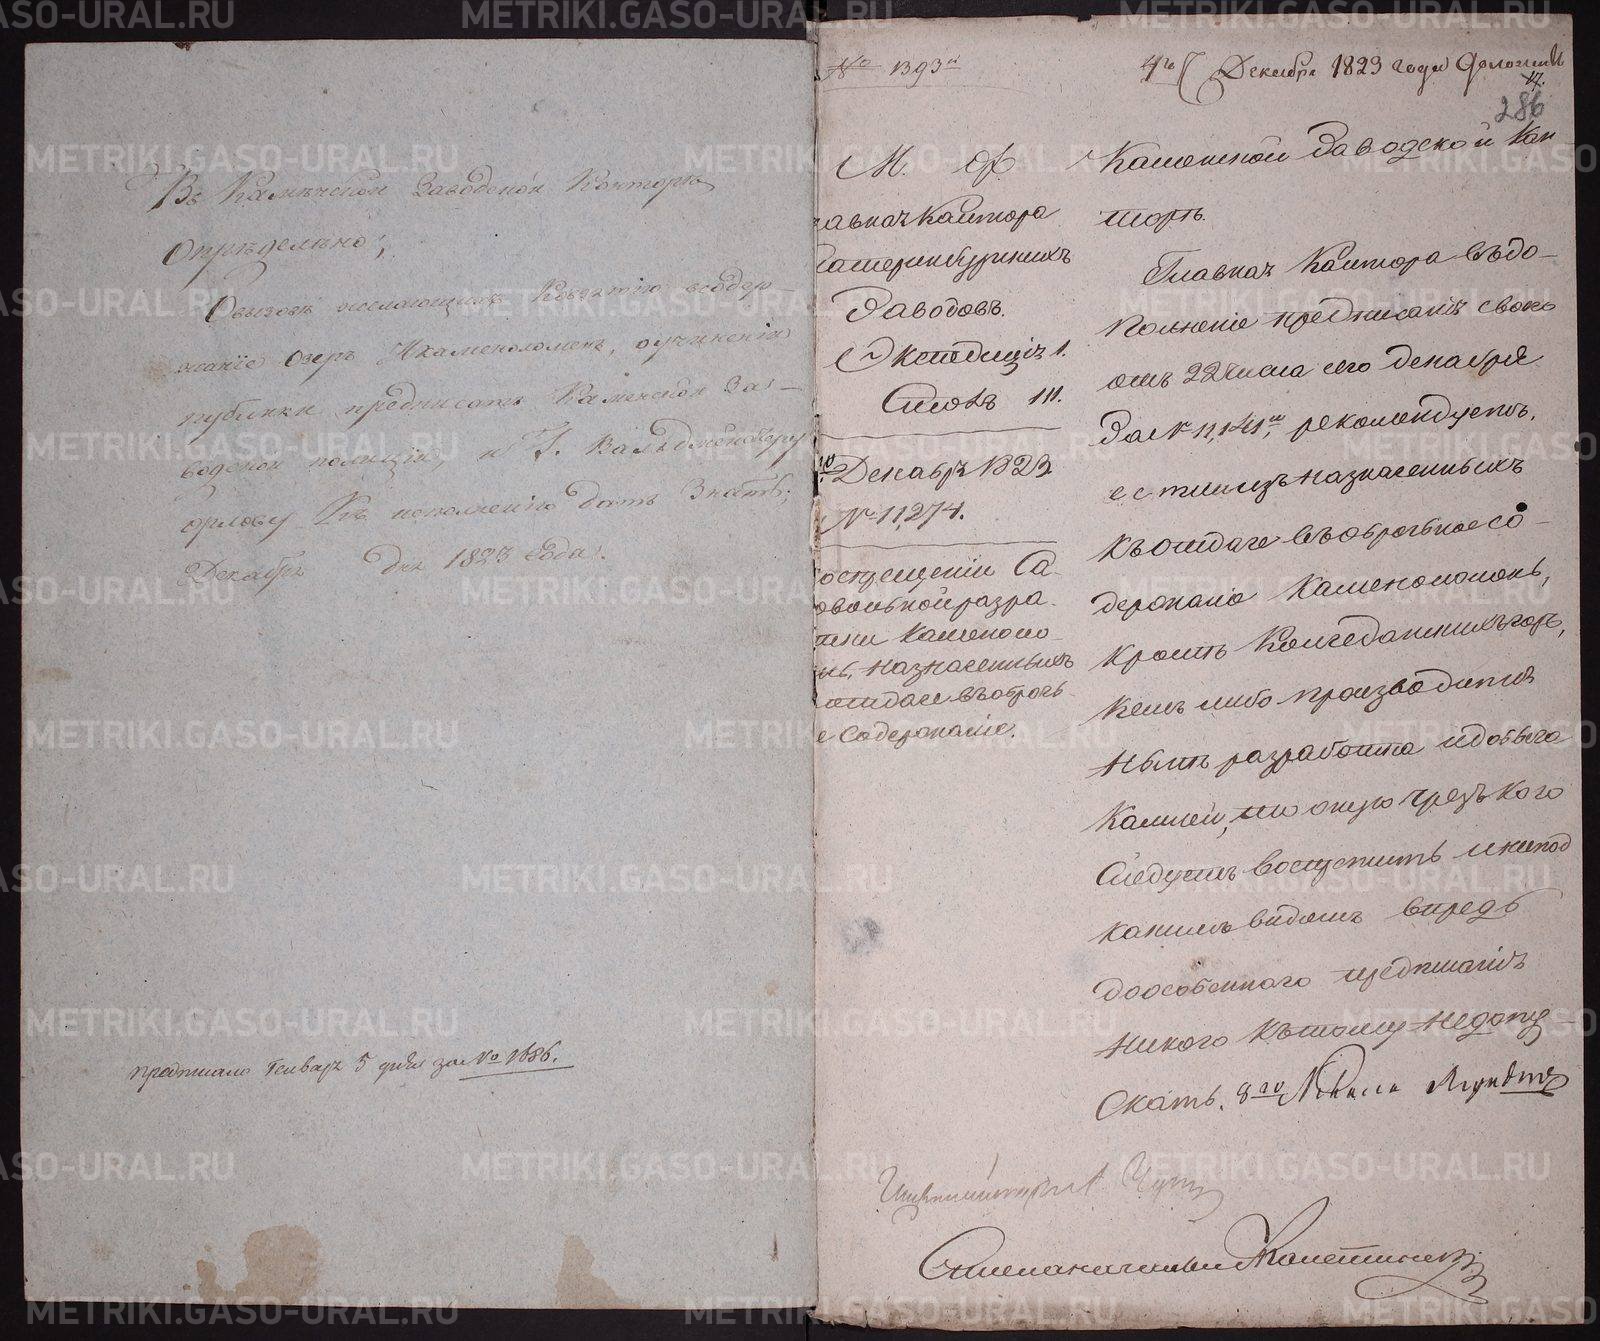 Въ Каменской Заводской Конторѣ
Опредѣлено;
О вызовѣ желающихъ Ко взятiю всодер-
жанiе Озеръ И каменоломенъ, о учиненiи
публики предписать Каменской За-
водской полицiи, и Г. Вальдмейстеру
орлову Къ исполненiю дать Знать;
Декабря дня 1823 Года.
предписано Генваря 5 дня за № 1686.
№ 1393й
Декабря 1823 года
286
М. Ф.
лавная Кантора
катеринбургскихъ
Заводовъ.
Экспедицiя 1.
Столъ III.
Декабря 1823
№ 11,274.
оспрещенiи Са-
овольной разра-
тки каменоло-
нь, назначенныхъ
отдаче въ оброч-
е Содержанiе.
Каменской Заводской Кан
торѣ.
Главная Кантора въдо-
полненiе предписанiя своего
отъ 22 числа сего декабря
за № 11,141м, рекомендуетъ,
естли изъ назначенныхъ
къ отдаче въ оброчное со-
держанiе Каменоломень,
кромѣ Колчеданскихъ горъ,
кемъ либо производится
нынѣ разработка и добыча
Камней, то оную чрезъ кого
слѣдуетъ воспретить и ни под
какимъ видомъ впредь
до особеннаго предписанiя
никого къ тому недопу
скать.
Столоначальникъ